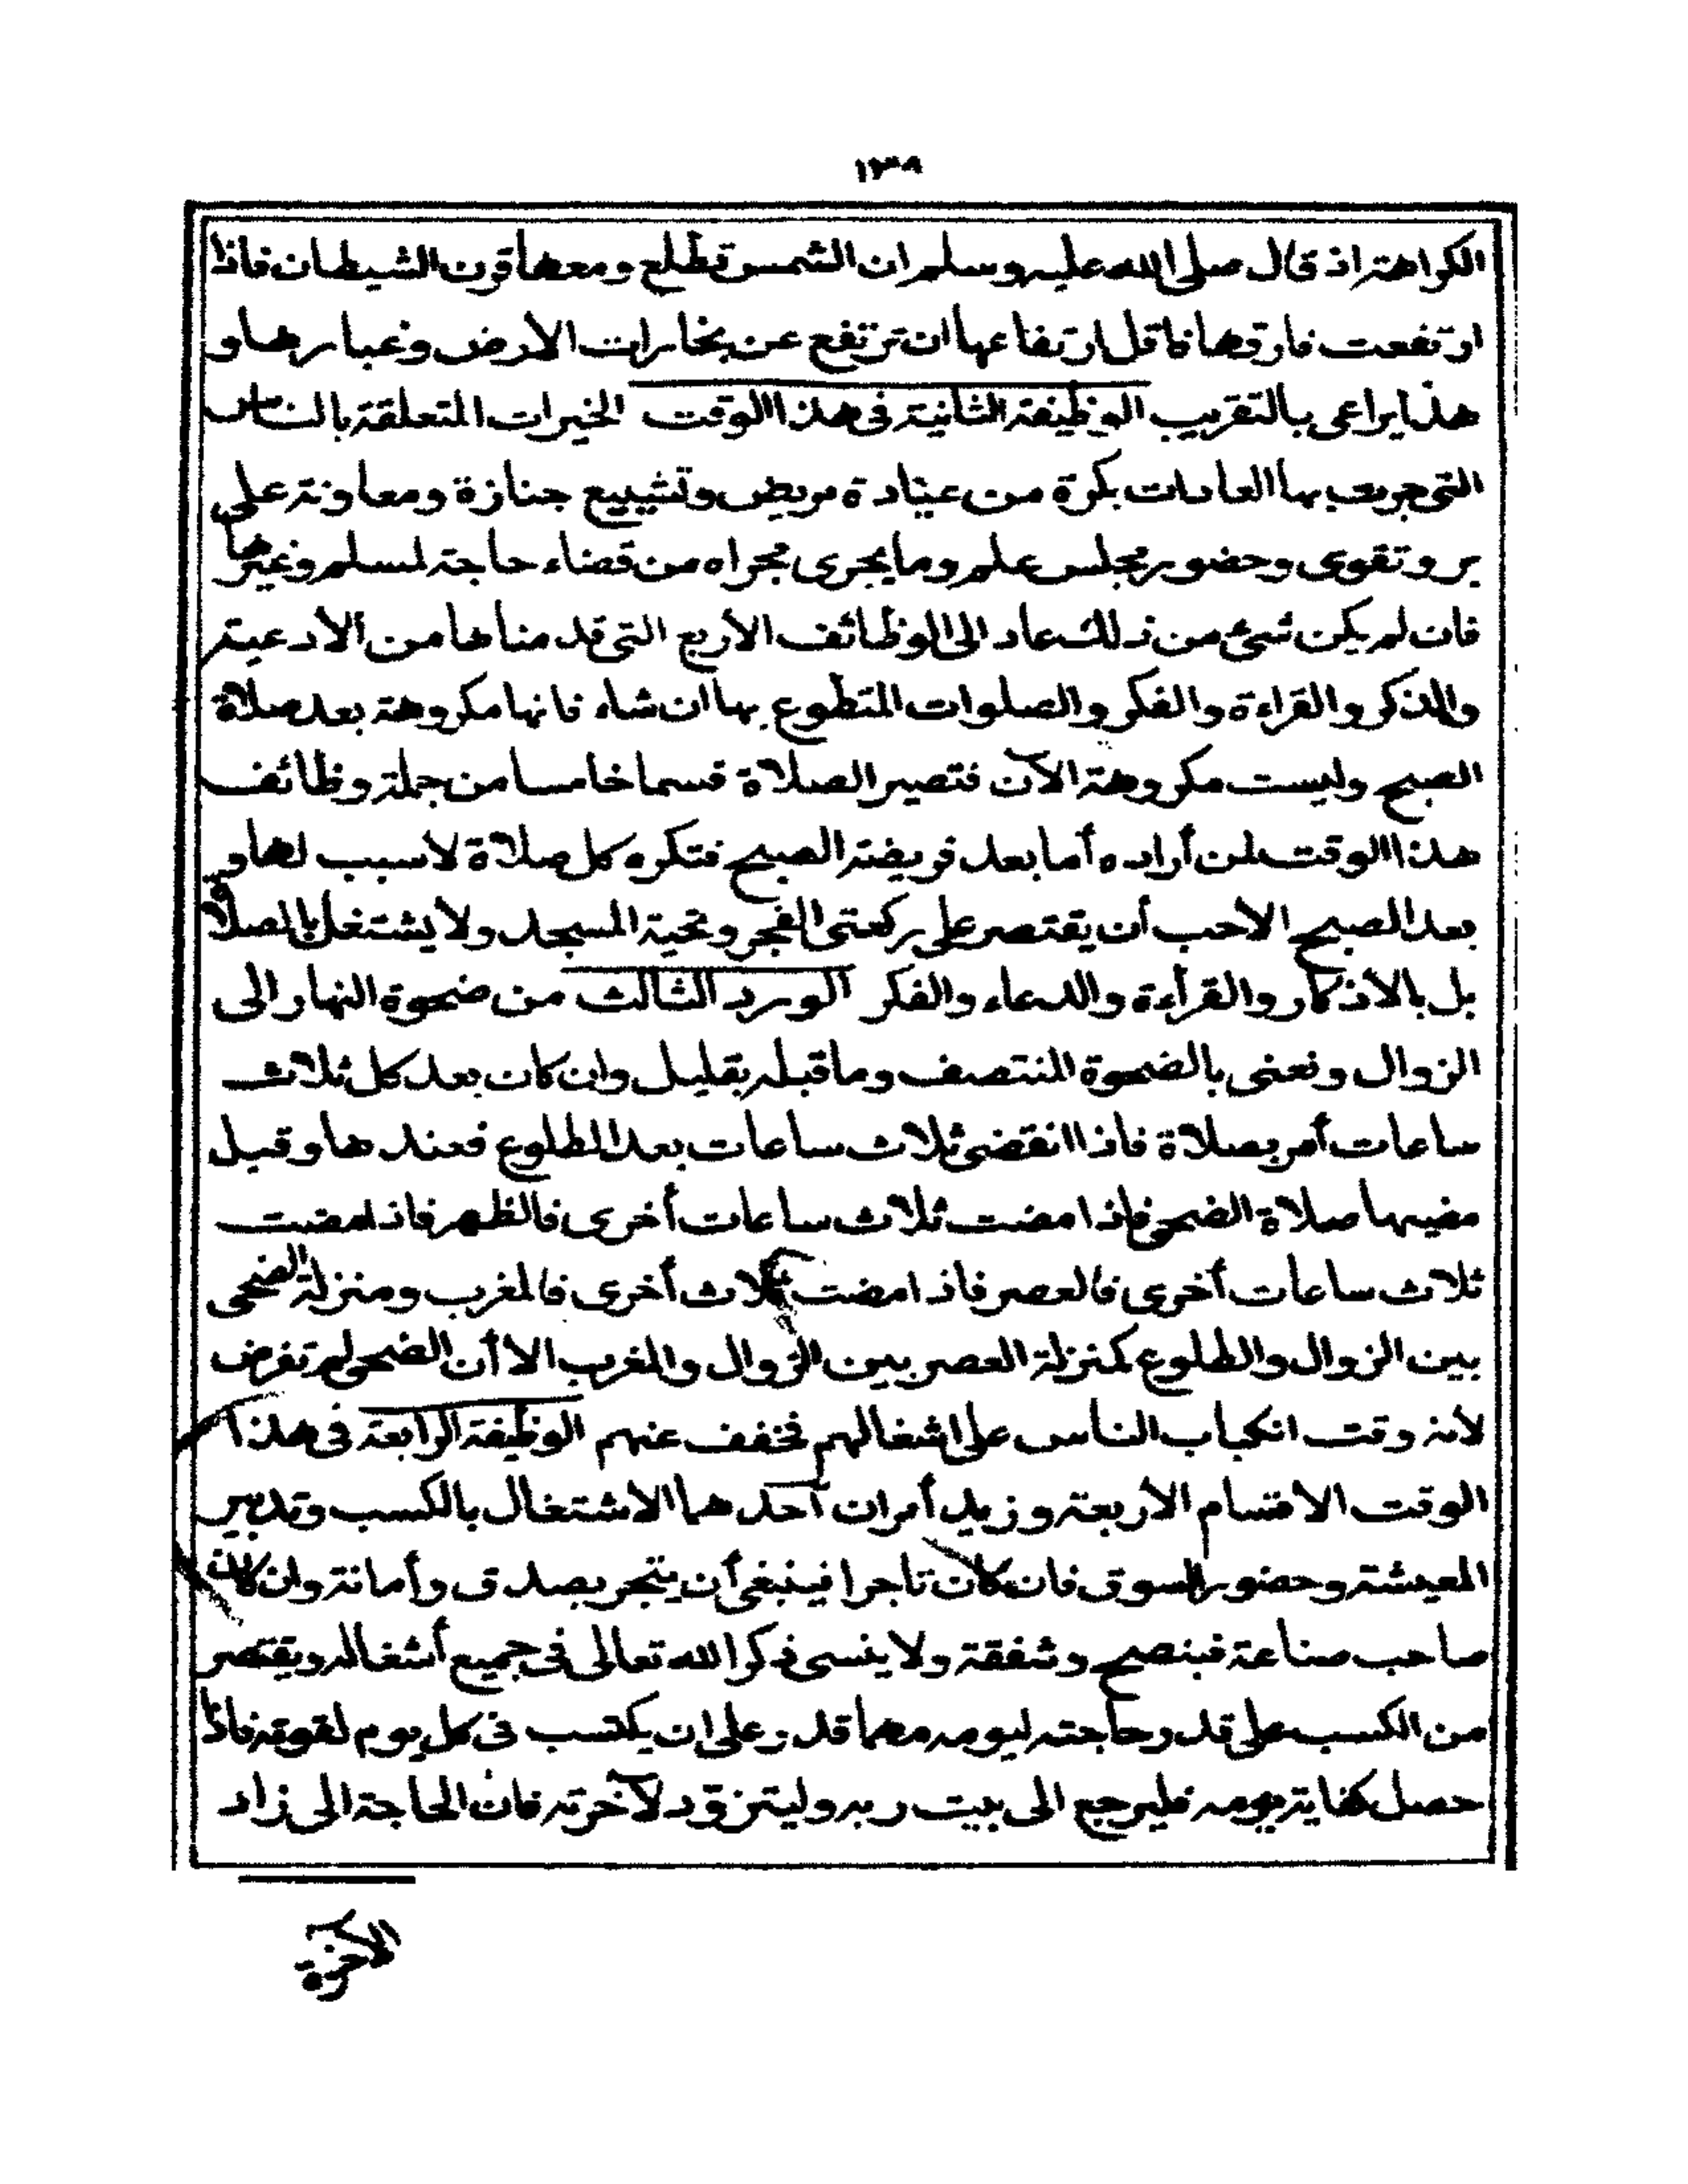 ١٣٩
الكراهة اذ قال صلى الله عليه وسلم ان الشمس تطلع ومعها قرن الشيطان فاذا
ارتفعت فارقها فاقل ارتفاعها ان ترتفع عن بخارات الارض وغبارها و
هذا يراعى بالتقريب الوظيفة الثانية فى هذا الوقت الخيرات المتعلقة بالناس
التى جرت بها العادات بكرة من عيادة مريض وتشييع جنازة ومعاونة على
بر وتقوى وحضور مجلس علم وما يجرى مجراه من قضاء حاجة لمسلم وغيرها
فان لم يكن شئ من ذلك عاد الى الوظائف الأربع التى قدمناها من الأدعية
والذكر والقراءة والفكر والصلوات المتطوع بها ان شاء فانها مكروهة بعد صلاة
الصبح وليست مكروهة الآن فتصير الصلاة قسما خامسا من جملة وظائف
هذا الوقت لمن أراده أما بعد فريضة الصبح فتكره كل صلاة لا سبب لها و
بعد الصبح الأحب أن يقتصر على ركعتى الفجر وتحية المسجد ولا يشتغل بالصلاة
بل بالأذكار والقرأءة والدعاء والفكر الورد الثالث من ضحوة النهار الى
الزوال ونعنى بالضحوة المنتصف وما قبله بقليل وان كان بعد كل ثلاث
ساعات أمر بصلاة فاذا انقضى ثلاث ساعات بعد الطلوع فعندها وقبل
مضيها صلاة الضحى فاذا مضت ثلاث ساعات أخرى فالظهر فاذا مضت
ثلاث ساعات أخرى فالعصر فاذا مضت ثلاث أخرى فالمغرب ومنزلة الضحى
بين الزوال والطلوع كمنزلة العصر بين الزوال والمغرب الا أن الضحى لم تفرض
لأنه وقت انكباب الناس على اشغالهم فخفف عنهم الوظيفة الرابعة فى هذا
الوقت الاقسام الأربعة وزيد أمران أحدهما الاشتغال بالكسب وتدبير
المعيشة وحضور السوق فان كان تاجرا فينبغى أن يتجر بصدق وأمانة وان كان
صاحب صناعة فبنصح وشفقة ولا ينسى ذكر الله تعالى فى جميع أشغاله ويقتصر
من الكسب على قدر حاجته ليومه مهما قدر على ان يكتسب فى كل يوم لقوته فاذا
حصل كفاية يومه فليرجع الى بيت ربه وليتزود لآخرته فان الحاجة الى زاد
الآخرة